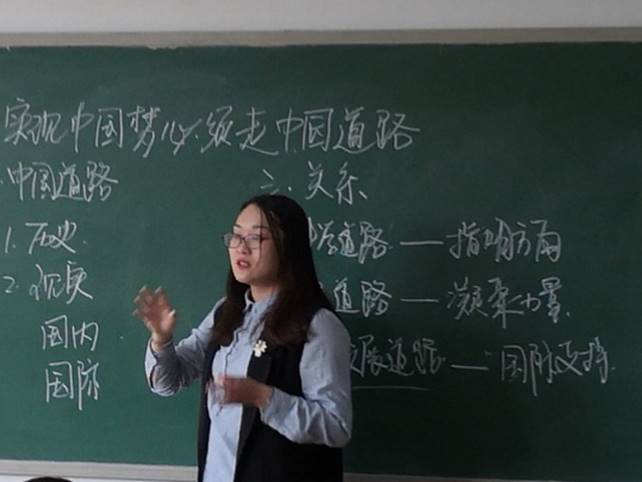 实现中国梦必须走中国道路
中国道路
1.历史
2.现实
国内
国际
二、关系
道路——指明方向
道路——凝聚力量
展道路——国际支持